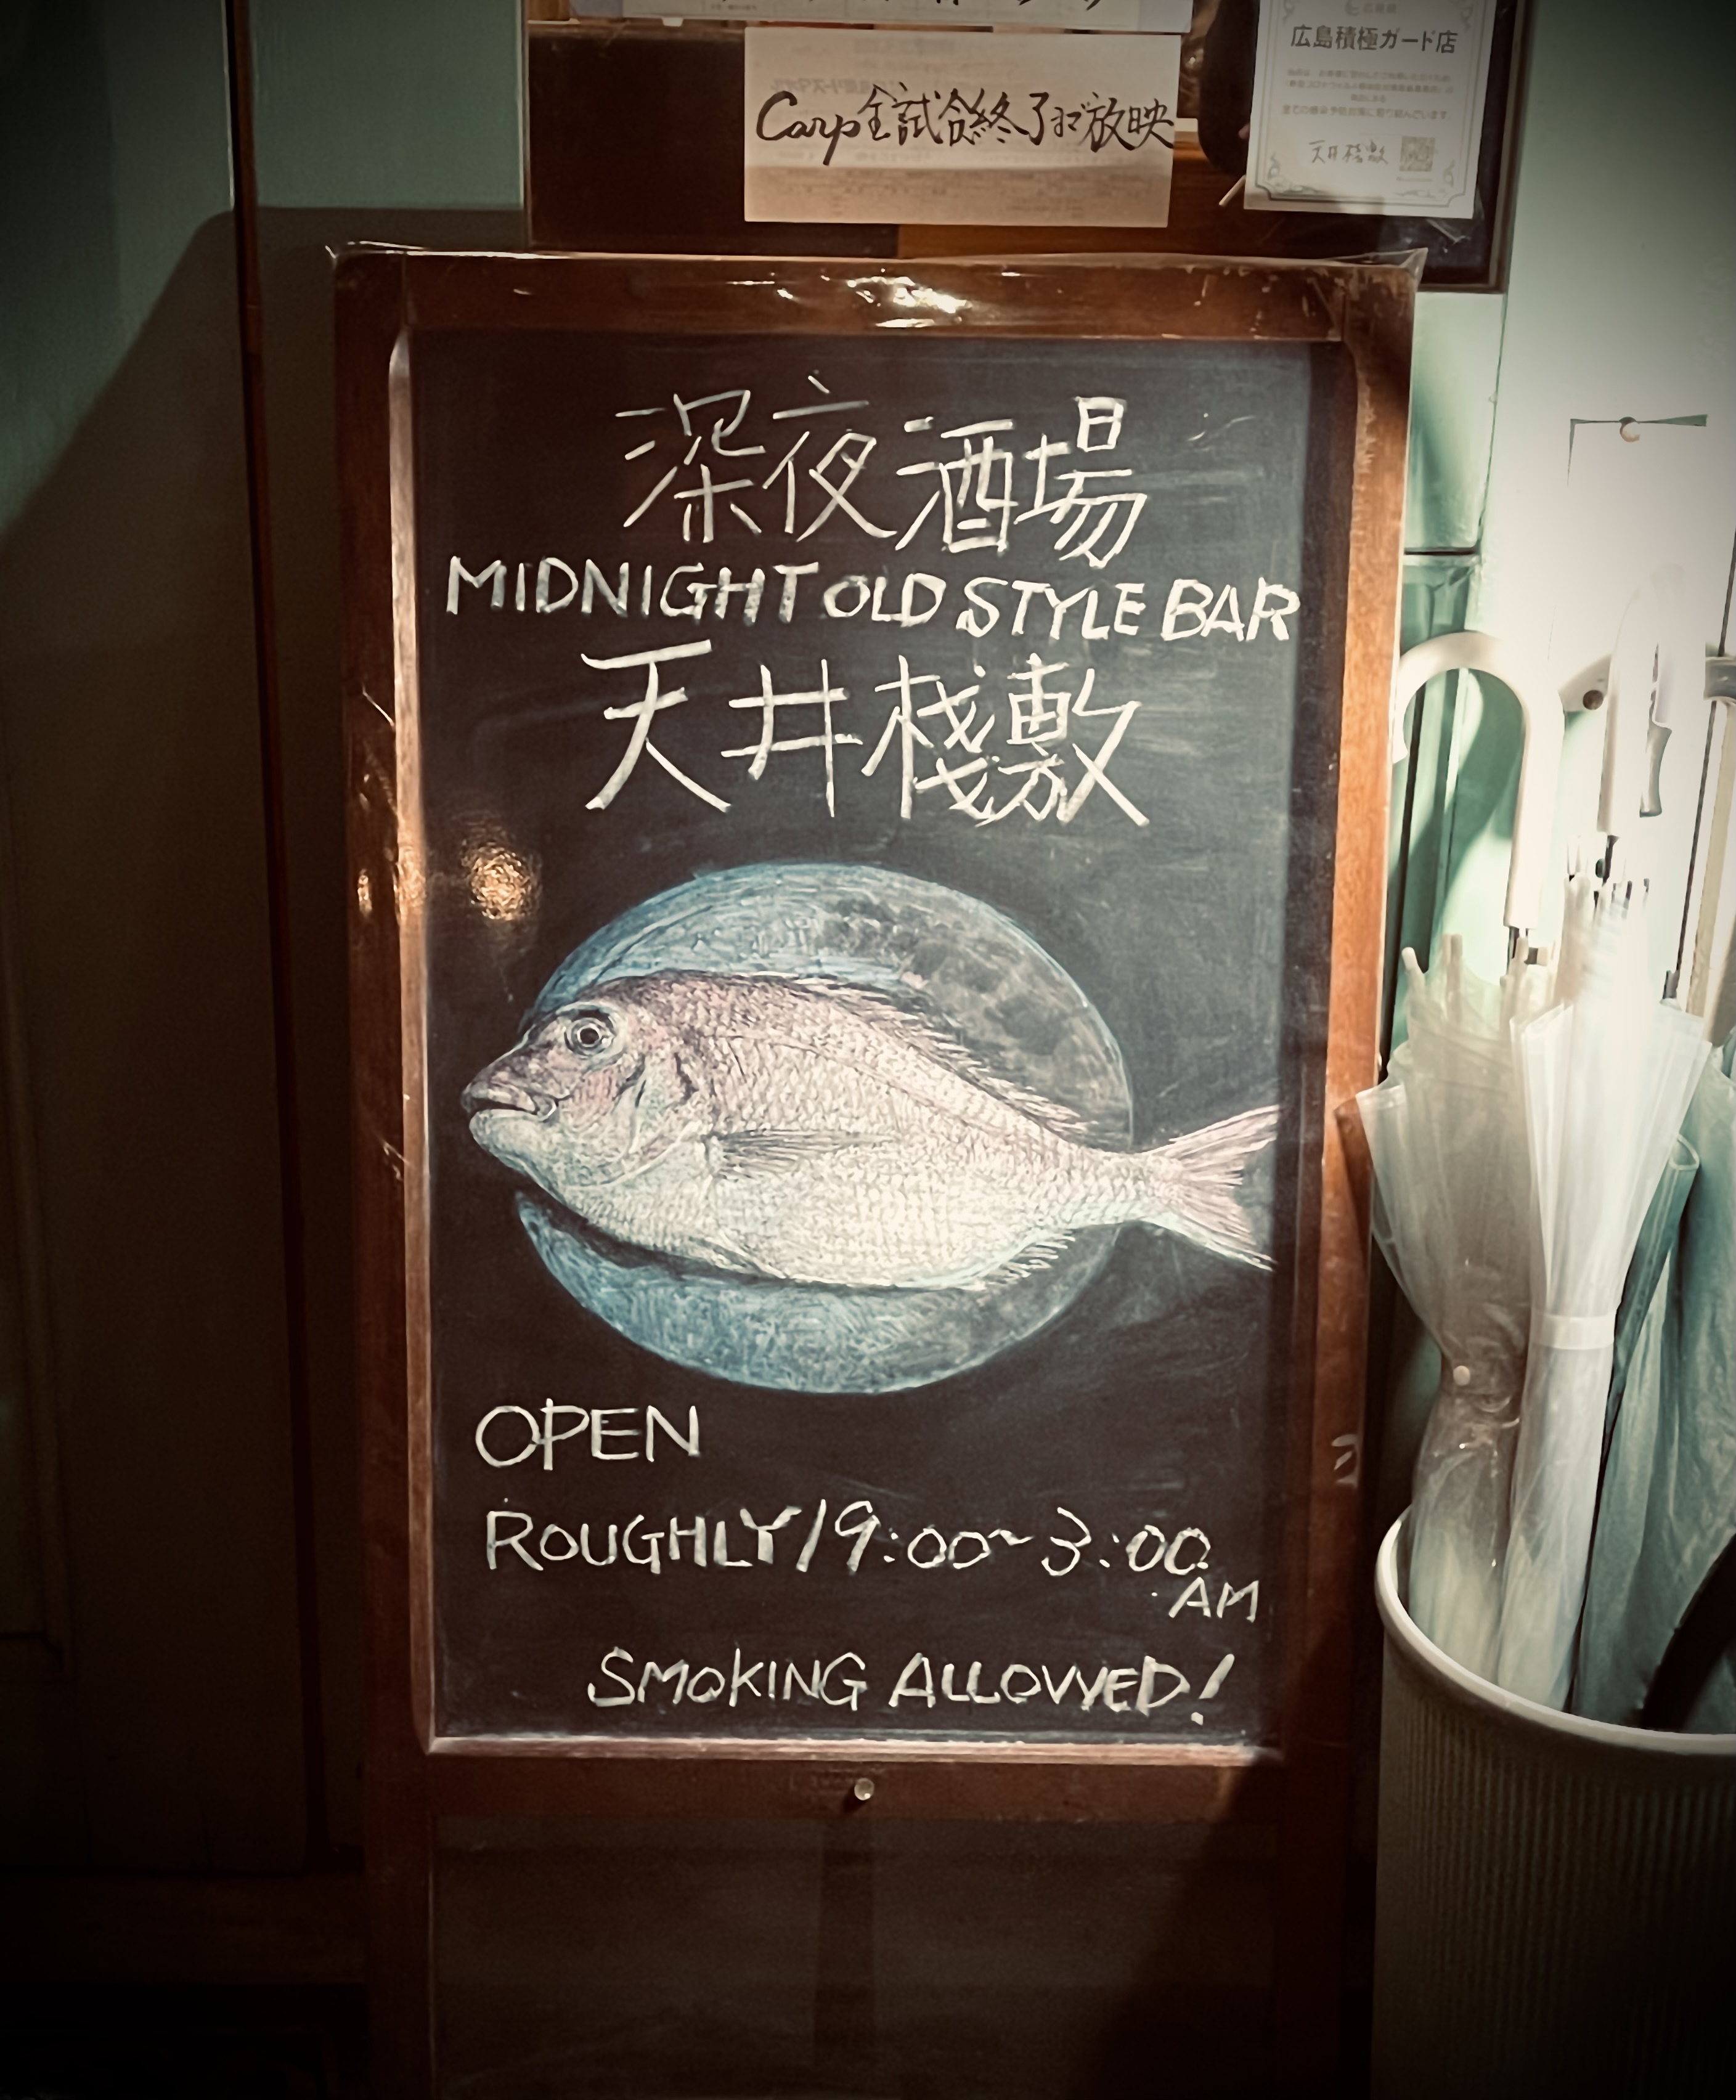 Carp全試合終了まで放映
広島積極ガード店
天井桟敷
深夜酒場
MIDNIGHT OLD STYLE BAR
天井棧敷
OPEN
ROUGHLY/9:00~3:00
AM
SMOKING ALLOWED!